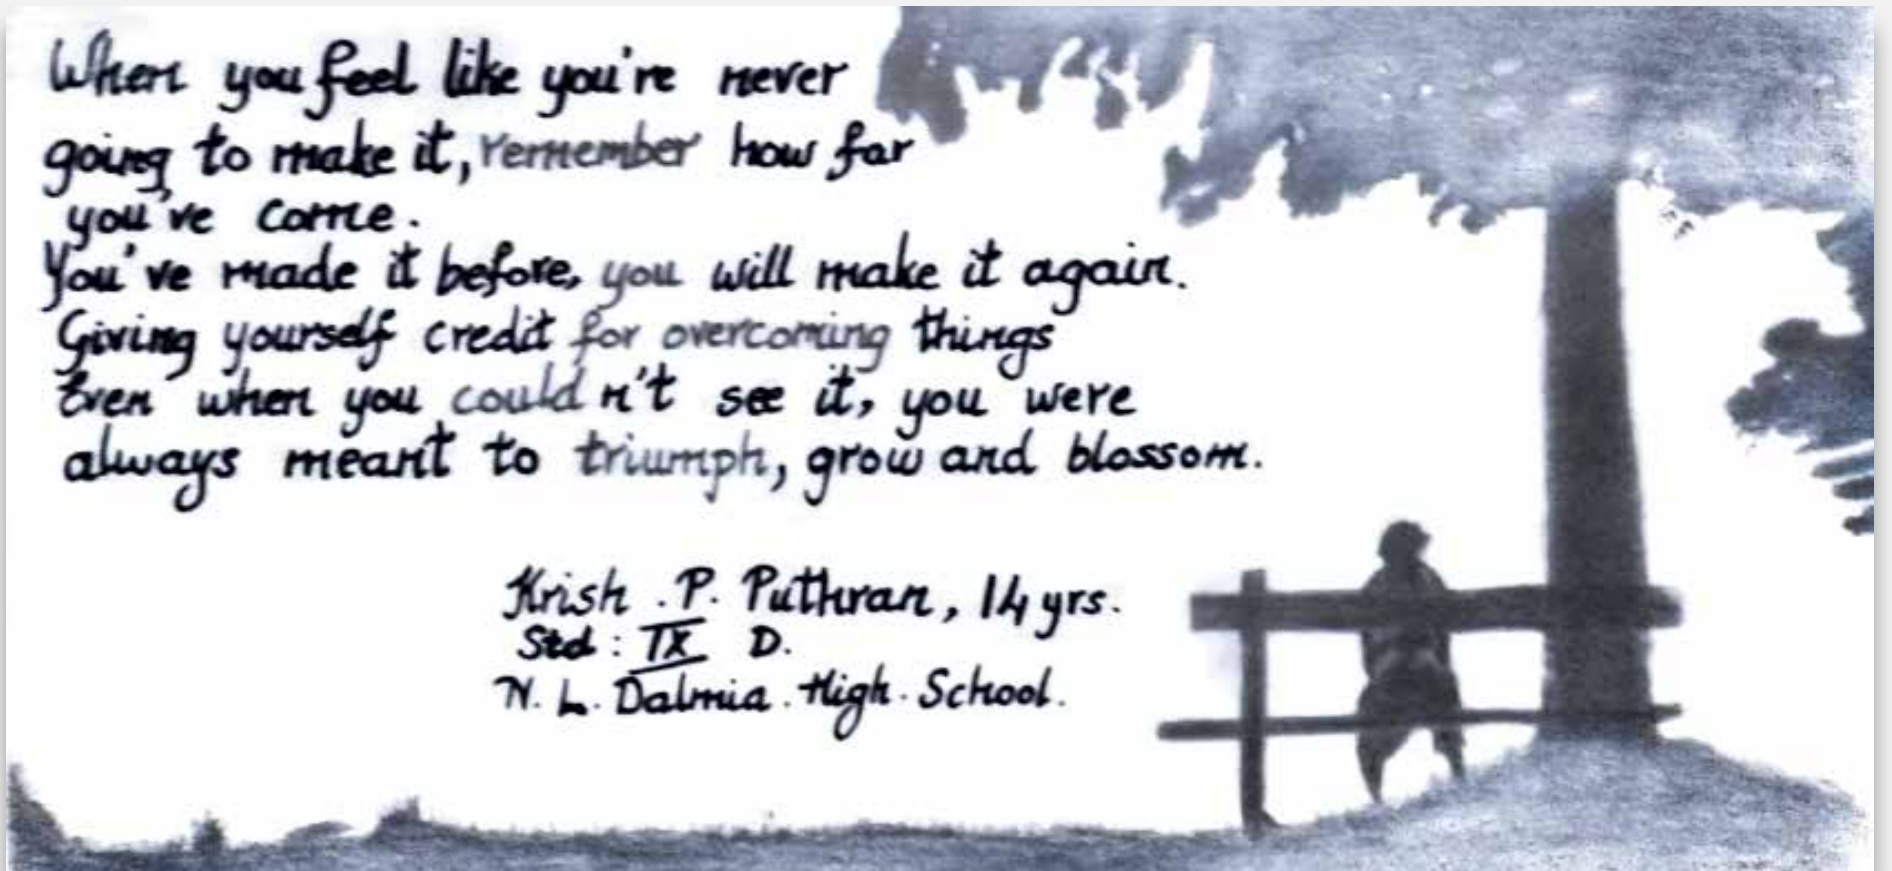 When you feel like you're never
going to make it, remember how far
you've come.
You've made it before, you will make it again.
Giving yourself credit for overcoming things
Even when you couldn't see it, you were
always meant to triumph, grow and blossom.
Krish . P. Puthran, 14 yrs.
Std : IX D.
N. L. Dalmia . High . School.